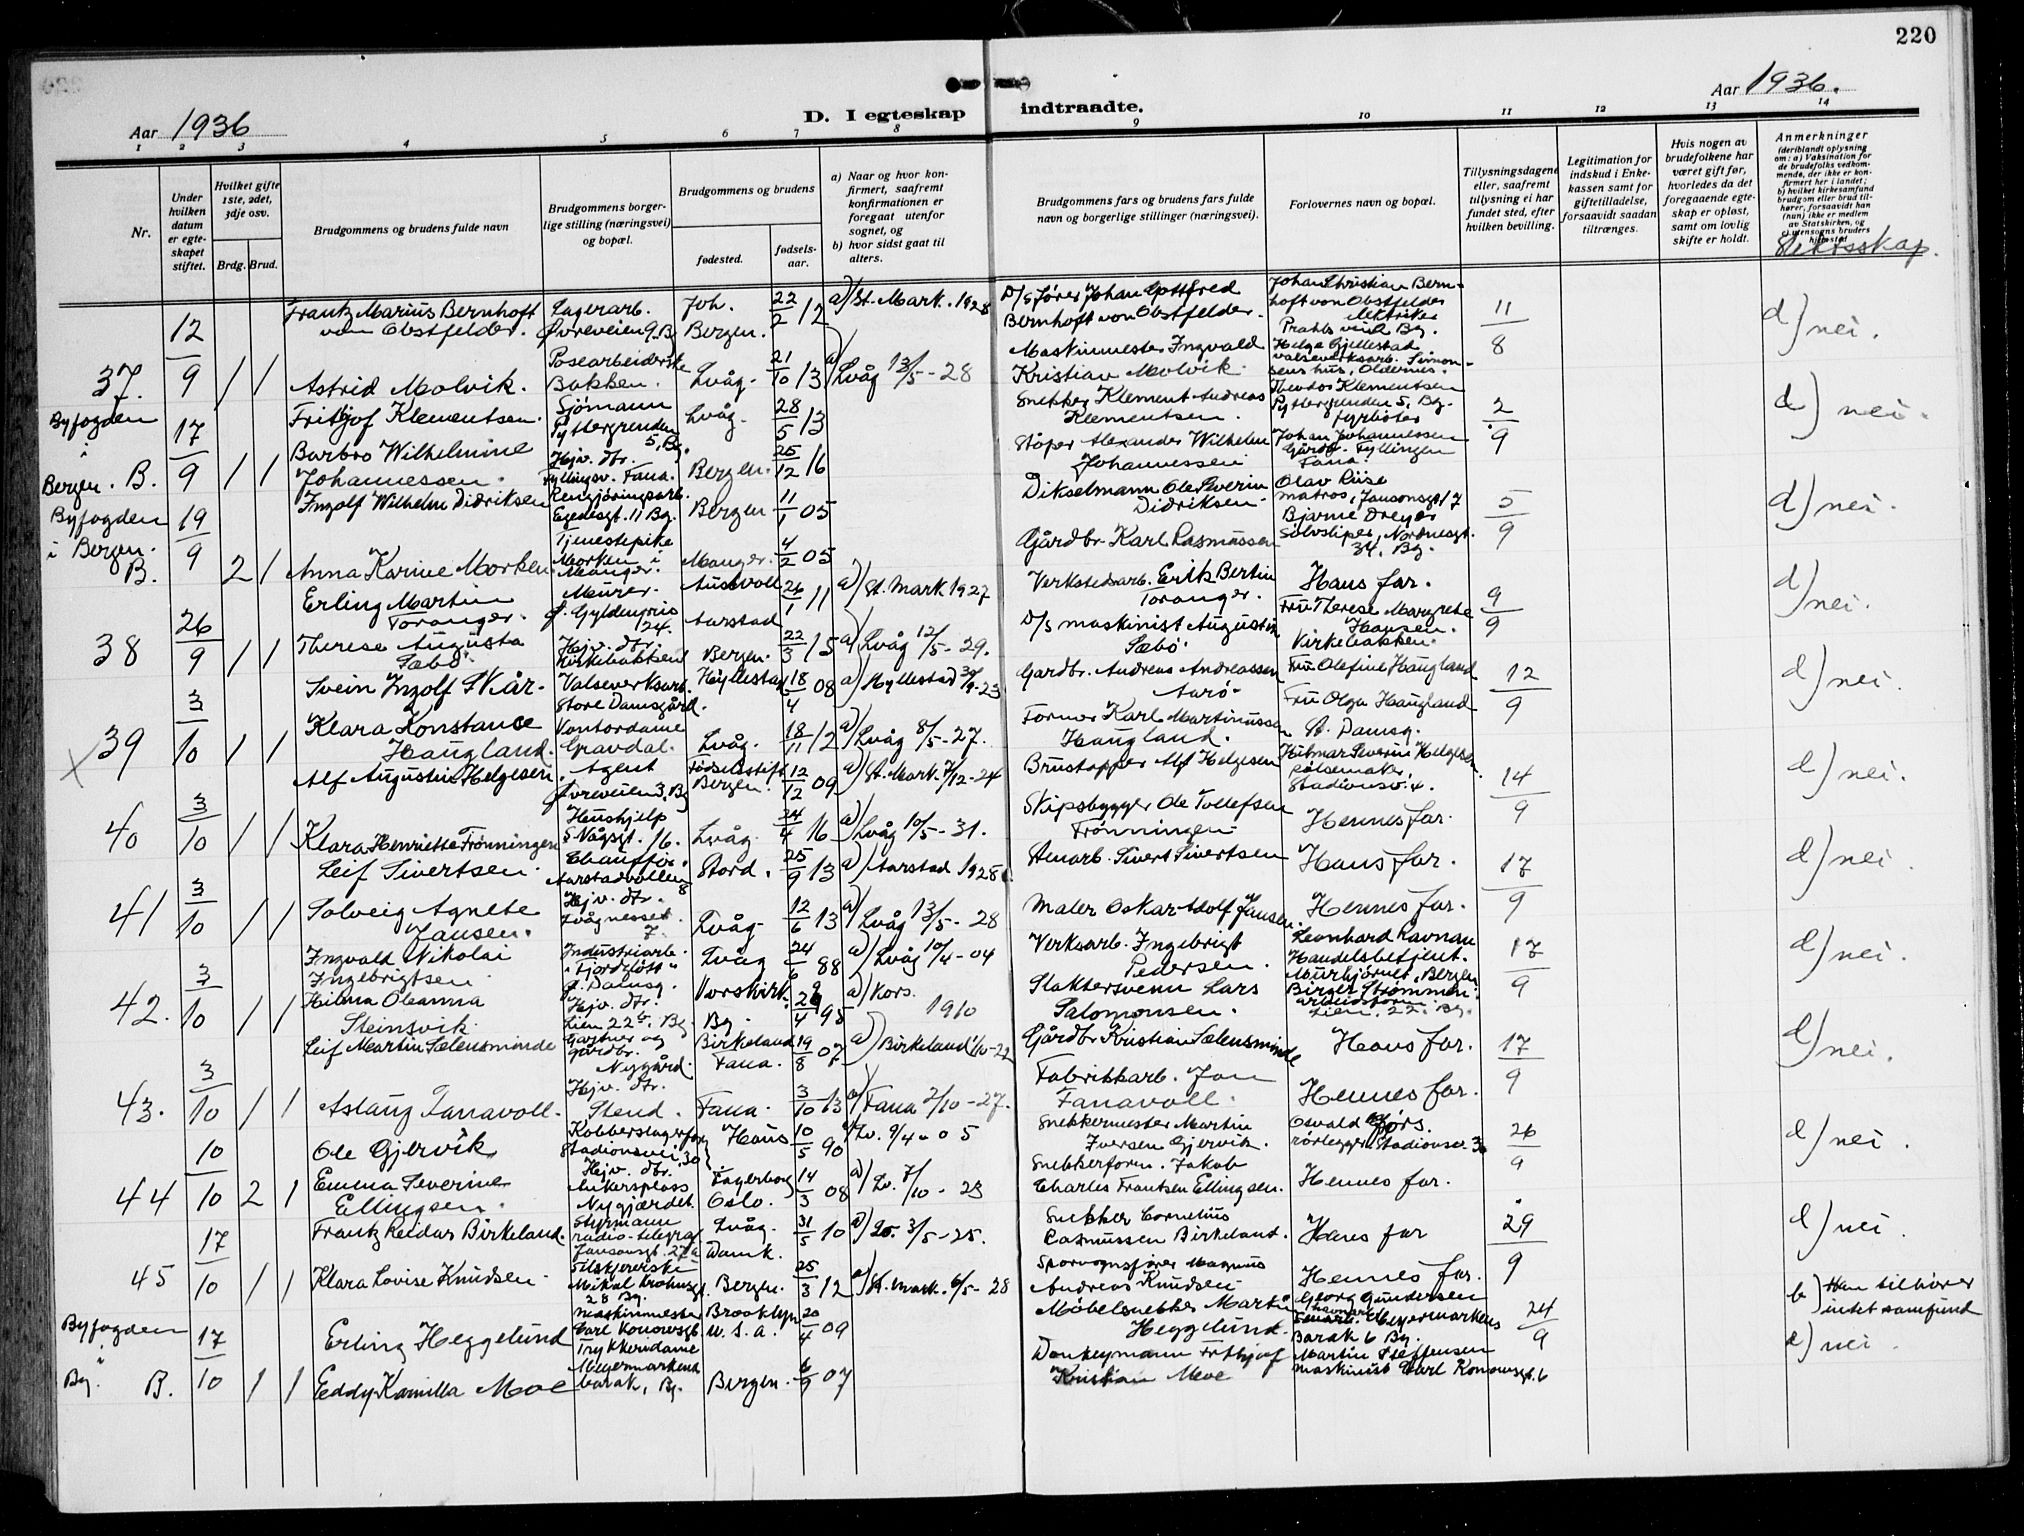 220
Aar 1936
D. I egteskap indtraadte.
Aar 1936.
1 2 3 4 5 6 7 8 9 10 11 12 13 14
Nr.
Under hvilken datum er egteskapet stiftet.
Hvilket gifte 1ste, 2det, 3dje osv.
Brdg. Brud.
Brudgommens og brudens fulde navn
Brudgommens borgerlige stilling (næringsvei) og bopæl.
Brudgommens og brudens
fødested.
fødselsaar.
a) Naar og hvor konfirmert, saafremt konfirmationen er foregaat utenfor sognet, og
b) hvor sidst gaat til alters.
Brudgommens fars og brudens fars fulde navn og borgerlige stillinger (næringsvei).
Forlovernes navn og bopæl.
Tillysningsdagene eller, saafremt tillysning ei har fundet sted, efter hvilken bevilling.
Legitimation for indskud i Enkekassen samt for giftetilladelse, forsaavidt saadan tiltrænges.
Hvis nogen av brudefolkene har været gift før, hvorledes da det foregaaende egteskap er opløst, samt om lovlig skifte er holdt.
Anmerkninger
(deriblandt oplysning om: a) Vaksination for de brudefolks vedkommende, der ikke er konfirmert her i landet; b) hvilket kirkesamfund brudgom eller brud tilhører, forsaavidt han (hun) ikke er medlem av Statskirken, og c) utensogns bruders hjemsted
Slektsskap.
37. 12/9 1 1
Frantz Marius Bernhoft von Obstfelder. Lagerarb. Øvreveien 9. B Joh. Bergen. 22/2 12 a) St. Mark. 1928 D/S fører Johan Gottfred Bernhoft von Obstfelder. Johan Christian Bernhoft von Obstfelder 11/8 d) nei.
Astrid Molvik. Posearbeiderske Bakken. Lvåg. 21/10 13 a) Lvåg 13/5-28 Maskinmester Ingvald Kristian Molvik. Helge Gjellestad valseverksarb. Simonsens hus, Oldernes.
Byfogden i Bergen. B. 17/9 1 1
Fritjof Klementsen. Sjømann Pyttergrenden 5, Bg. Lvåg. 28/5 13 Snekker Klement Andreas Klementsen. Theodor Klementsen Pyttergrenden 5, Bg. fyrbøter 2/9 d) nei.
Barbro Wilhelmine Johannessen. Hjv. dtr. Fyllingsv. Fana. Bergen. 25/12 16 Støper Alexander Wilhelm Johannessen Johan Johannessen Gårdbr. Fyllingen Fana.
Byfogden i Bergen. B. 19/9 2 1
Ingolf Wilhelm Didriksen Rengjøringsarb. Egedesgt. 11 Bg. Bergen 11/1 05 Dikselmann Ole Severin Didriksen. Olav Riise matros, Jansonsgt. 17 5/9 d) nei.
Anna Karine Morken Tjenestepike Morken i Manger. Manger. 4/2 05 Gårdbr. Karl Rasmussen Bjarne Dreyer Sølvsliper, Nordnesgt. 34, Bg.
38 26/9 1 1
Erling Martin Toranger. Murer. J. Gyldenpris 24. Austevoll Aarstad 26/1 11 a) St. Mark 1927 Verkstedarb. Erik Bertin Toranger. Hans far. 9/9 d) nei.
Therese Augusta Sæbö. Hjv. dtr. Kirkebakken Bergen. 22/3 15 a) Lvåg 12/5-29. D/s maskinist Augustin Sæbö. Fru Therese Margrethe Hansen. Kirkebakken.
x 39 3/10 1 1
Svein Ingolf Skår. Valseverksarb. Store Damsgård. Hyllestad 18/4 08 a) Hyllestad 30/9-23 Gardbr. Andreas Andreassen Aarö. Fru Olefine Haugland 12/9 d) nei.
Klara Konstance Haugland. Kontordame Gravdal. Lvåg. 18/11 12 a) Lvåg 8/5-27. Former Karl Martinussen Haugland. Fru Olga Haugland St. Damsg.
40 3/10 1 1
Alf Augustin Helgesen. Agent Øvreveien 3, Bg Fødselsstift. Bergen. 12/12 09 a) St. Mark. 7/12-24 Brustapper Alf Helgesen Hilmar Severin Helgesen. pølsemaker, Stadionsv. 4. 14/9 d) nei.
Klara Henriette Frönningen Hushjelp S. Vågsgt. 16. Lvåg. 24/4 16 a) Lvåg 10/5-31. Skipsbygger Ole Tollefsen Frönningen. Hennes far.
41 3/10 1 1
Leif Sivertsen. Chauffør. Aarstadvollen 8 Stord. 25/9 13 a) Aarstad 1928 Stenarb. Sivert Sivertsen Hans far. 17/9 d) nei.
Solveig Agnete Jansen. Hjv. dtr. Lvågnesset 7. Lvåg. 12/6 13 a) Lvåg 13/5-28 Maler Oskar Adolf Jansen. Hennes far.
42. 3/10 1 1
Ingvald Nikolai Ingebrigtsen Industriarb. "Fjordsløtt" J. Damsg. Lvåg 24/6 88 a) Lvåg 10/4-04 Verksarb. Ingebrigt Pedersen. Leonhard Ravnan Handelsbetjent. Murhjørnet, Bergen 17/9 d) nei.
Hilma Oleanna Steinsvik. Hjv. dtr. Lien 22b. Bg. Korskirk. Bg. 29/4 95 a) Kors. 1910 Slaktersvenn Lars Salomonsen. Birger Strømmen. arbeidsform. Lien. 22. Bg.
43. 3/10 1 1
Leif Martin Sælensminde Gartner og gårdbr. Nygård. Birkeland Fana. 19/8 07 a) Birkeland 1/10-22 Gårdbr. Kristian Sælensminde Hans far. 17/9 d) nei.
Aslaug Fanavoll. Hjv. dtr. Stend. Fana. 3/10 13 a) Fana 2/10-27. Fabrikkarb. Jon Fanavoll. Hennes far.
44 10/10 2 1
Ole Gjervik Kobberslagerform Stadionsvei 30 Haus 10/5 90 Lv. 9/4-05 Snekkermester Martin Iversen Gjervik. Osvald Gjørs. rørlegger Stadionsv. 3 26/9 d) nei.
Emma Severine Ellingsen. Hjv. dtr. Ankersplass Nygjærdet. Fagerborg Oslo. 14/3 08 a) Lv. 7/10-23 Snekkerform. Jakob Charles Frantsen Ellingsen. Hennes far.
45 17/10 1 1
Frantz Reidar Birkeland. Styrmann radio-telegraf Jansonsgt. 27a Lvåg. Damk. 31/5 10 a) Lv. 3/5-25. Snekker Cornelius Rasmussen Birkeland. Hans far 29/9 d) nei
Klara Lovise Knudsen. Tilskjererske Mikal Krohnsgt. 28 Bg. Bergen. 25/3 12 a) St. Mark. 6/5-28 Sporvognsfører Magnus Andreas Knudsen Hennes far.
Byfogden i Bg. B. 17/10 1 1
Erling Heggelund Maskinmester Carl Konowsgt. Brooklyn U.S.A. 20/4 09 Møbelsnekker Martin Heggelund. Georg Gundersen Meyermarkens Barak 6 Bg. 24/9 b) Han tilhører intet samfund
d) nei
Eddy Kamilla Moe Trykkeridame Meyermarkens barak, Bg. Bergen. 6/9 07 Donkeymann Fritjof Kristian Moe Martin Steffensen maskinist Carl Konowsgt. 6